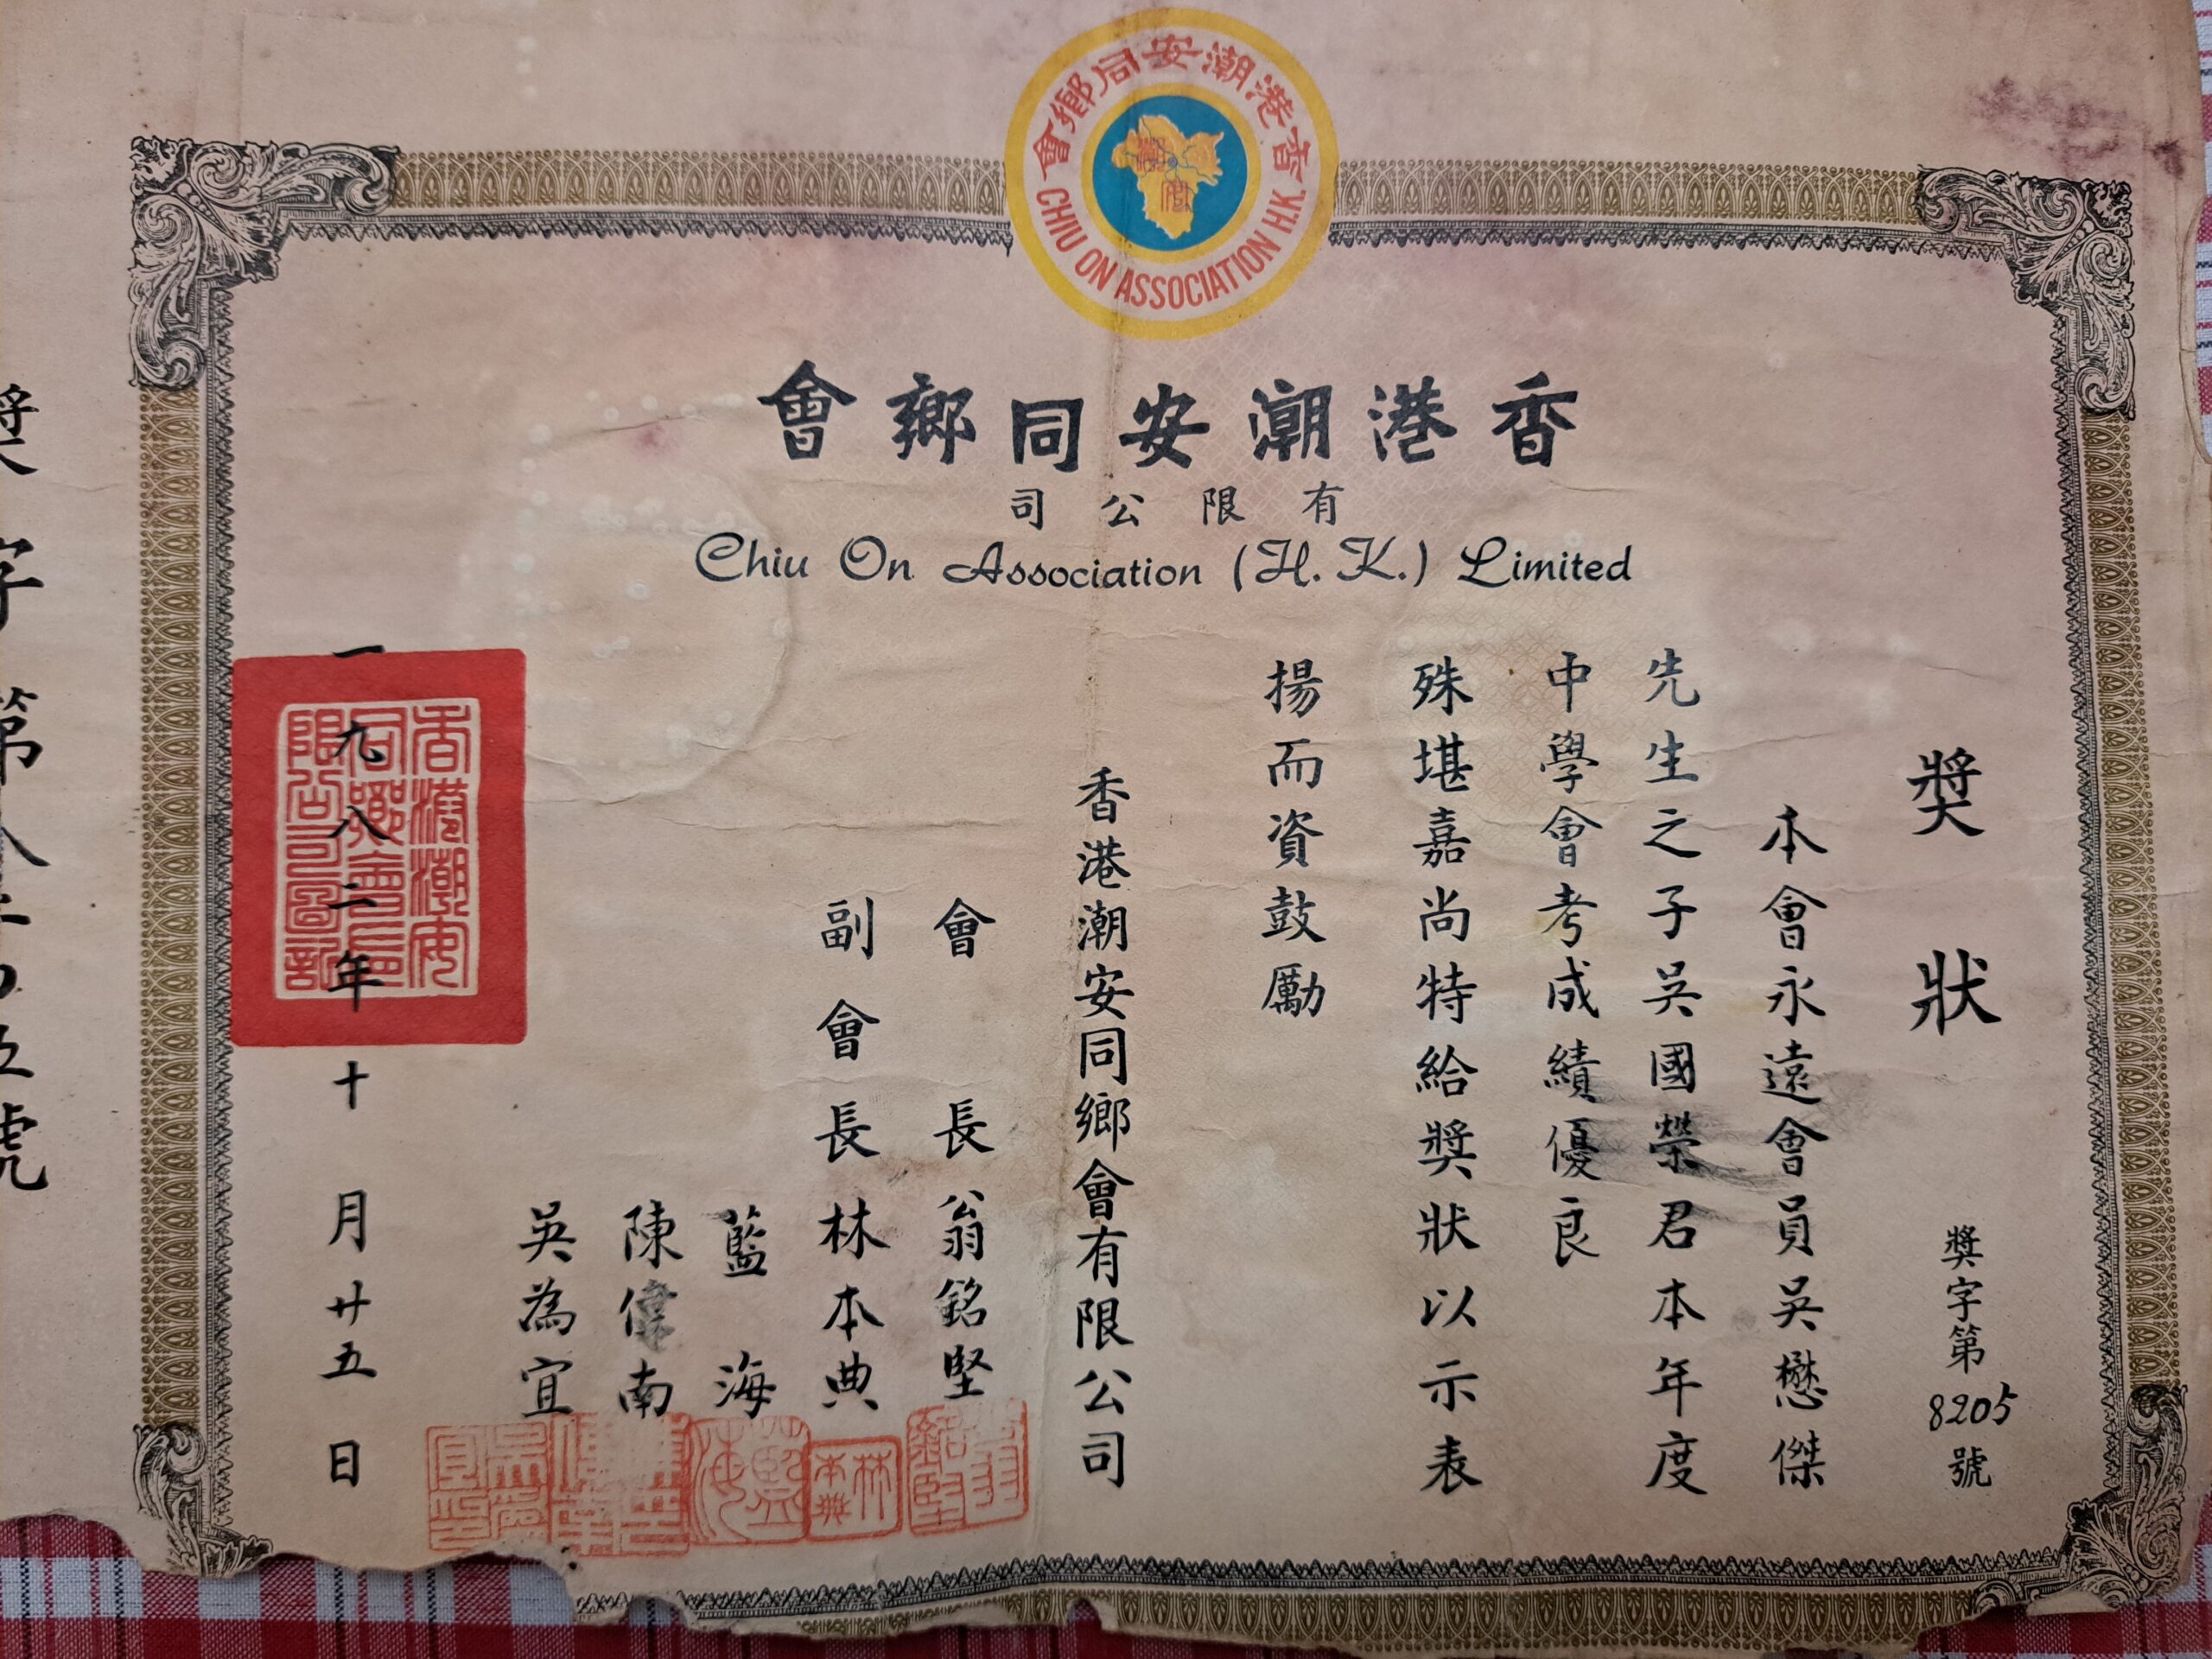 香港潮安同鄉會
CHIU ON ASSOCIATION H.K.
香港潮安同鄉會
有限公司
Chiu On Association (H.K.) Limited
獎狀
獎字第8205號
本會永遠會員吳懋傑
先生之子吳國榮君本年度
中學會考成績優良
殊堪嘉尚特給獎狀以示表
揚而資鼓勵
香港潮安同鄉會有限公司
會長翁銘堅
副會長林本典
藍海
陳偉南
吳為宜
一九八二年十月廿五日
香港潮安
同鄉會有
限公司圖記
林本典
藍海
獎字第
號